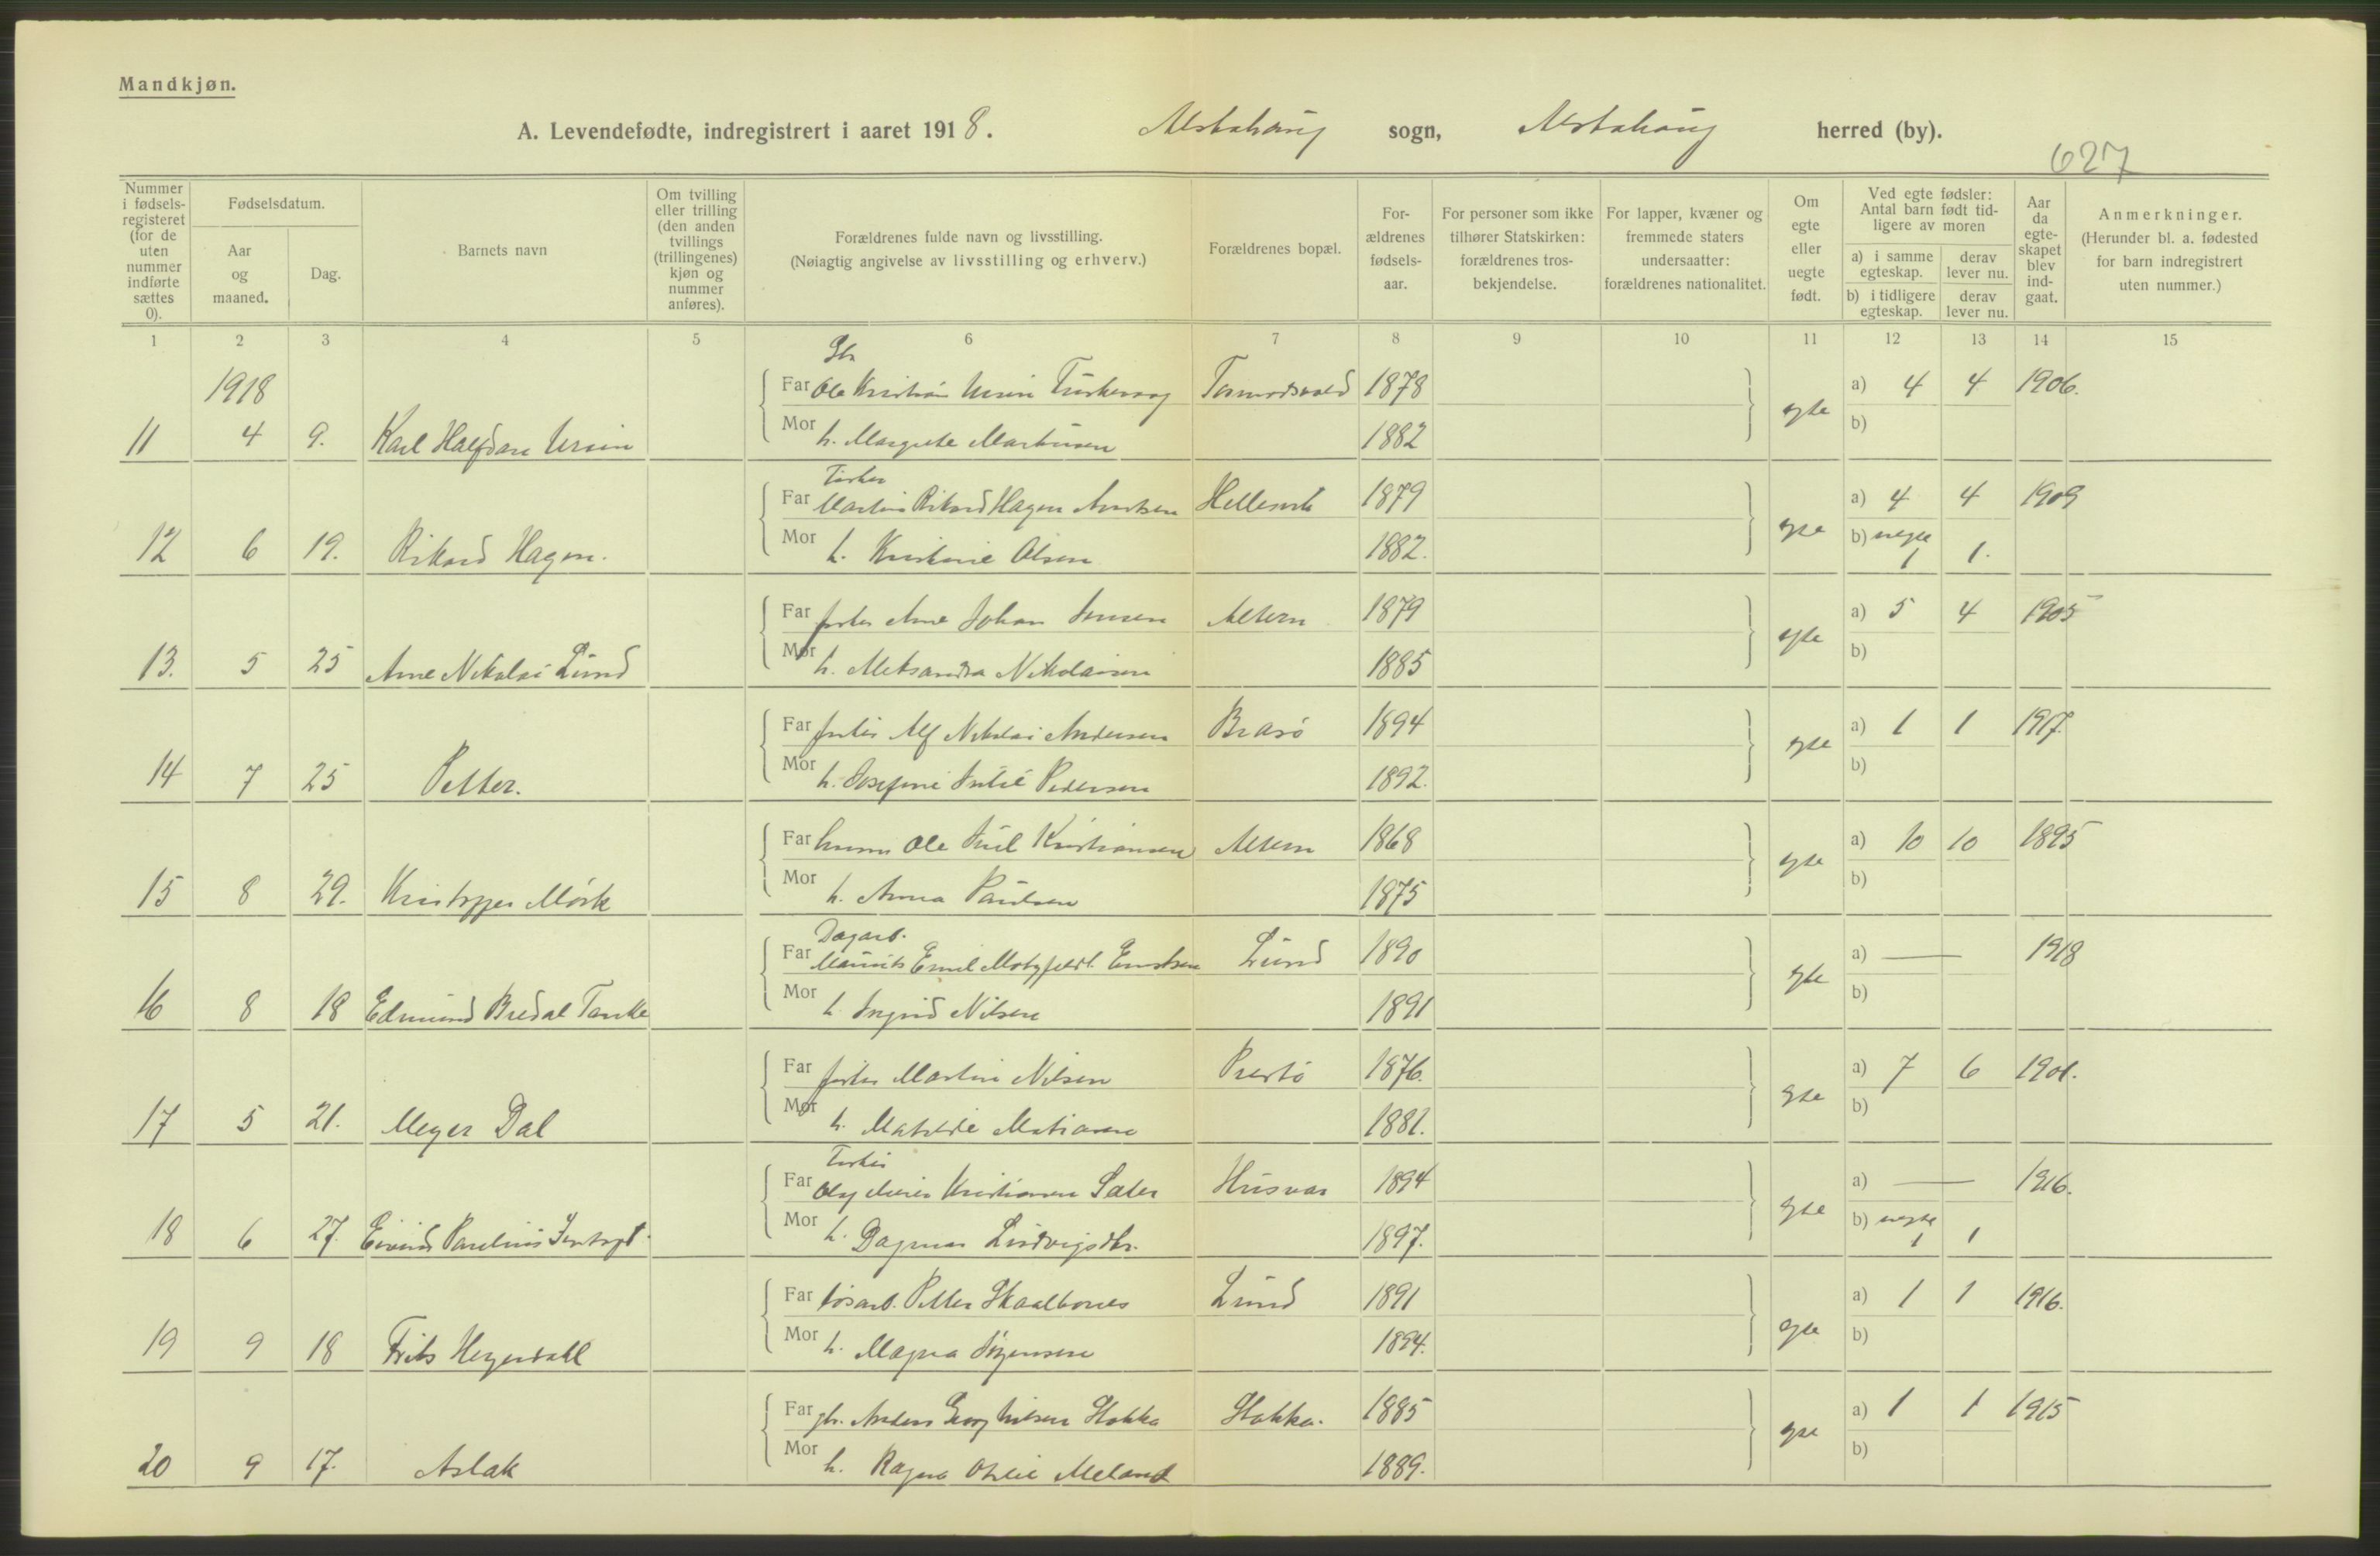 Mandkjøn.
A. Levendefødte, indregistrert i aaret 1918. Alstahaug sogn, Alstahaug herred (by).
627
Nummer i fødselsregisteret (for de uten nummer indførte sættes 0).
Fødselsdatum.
Aar og maaned.
Dag.
Barnets navn
Om tvilling eller trilling (den anden tvillings (trillingenes) kjøn og nummer anføres).
Forældrenes fulde navn og livsstilling.
(Nøiagtig angivelse av livsstilling og erhverv.)
Forældrenes bopæl.
Forældrenes fødselsaar.
For personer som ikke tilhører Statskirken: forældrenes trosbekjendelse.
For lapper, kvæner og fremmede staters undersaatter: forældrenes nationalitet.
Om egte eller uegte født.
Ved egte fødsler: Antal barn født tidligere av moren
a) i samme egteskap. derav lever nu.
b) i tidligere egteskap. derav lever nu.
Aar da egteskapet blev indgaat.
Anmerkninger.
(Herunder bl. a. fødested for barn indregistrert uten nummer.)
1 2 3 4 5 6 7 8 9 10 11 12 13 14 15
1918
Gbr
Far Ole Kristian Ursin 1878 a) 4 4 1906.
11 4 9. Karl Halfdan Ursin Mor h. Margrete Martinsen 1882 egte b)
Fisker
Far Martin Rikard Hagen 1879 a) 4 4 1909
12 6 19. Rikard Hagen. Mor h. Kristine Olsen 1882. egte b) uegte 1 1.
Far fisker Arne Johan Jensen Alsten 1879 a) 5 4 1905
13. 5 25 Arne Nikolai Lund Mor h. Aleksandra Nikolaisen 1885 egte b)
Far fisker Alf Nikolai Andersen Brasø 1894 a) 1 1 1917.
14 7 25 Petter. Mor h. Josefine Julie Pedersen 1892. egte b)
Far Ole Juel Kristiansen Alsten 1868 a) 10 10 1895
15 8 29. Kristoffer Mörk Mor h. Anna Paulsen 1875 egte b)
Dagarb.
Far Maurits Emil Motzfeldt Lund 1890 a) — 1918
16 8 18 Edmund Bredal Tanke Mor h. Ingrid Nilsen 1891 egte b)
Far fisker Martin Nilsen Prestø 1876. a) 7 6 1901.
17 5 21. Meyer Dal Mor h. Matilde 1881. egte b)
Fisker
Far Kristiansen Sæter Husvær 1894 a) — 1916.
18 6 27. Eivind Paulius Mor h. Dagmar Ludvigsdtr. 1897. egte b) uegte 1 1
Far løsarb. Petter Skaalbones Lund 1891 a) 1 1 1916.
19 9 18 Frits Heyerdahl Mor h. Magna Jørgensen 1894. egte b)
Far gbr. Anders Georg Nilsen Stokka Stokka. 1885 a) 1 1 1915
20 9 17. Aslak Mor h. Ragna Otelie Meland 1889. egte b)